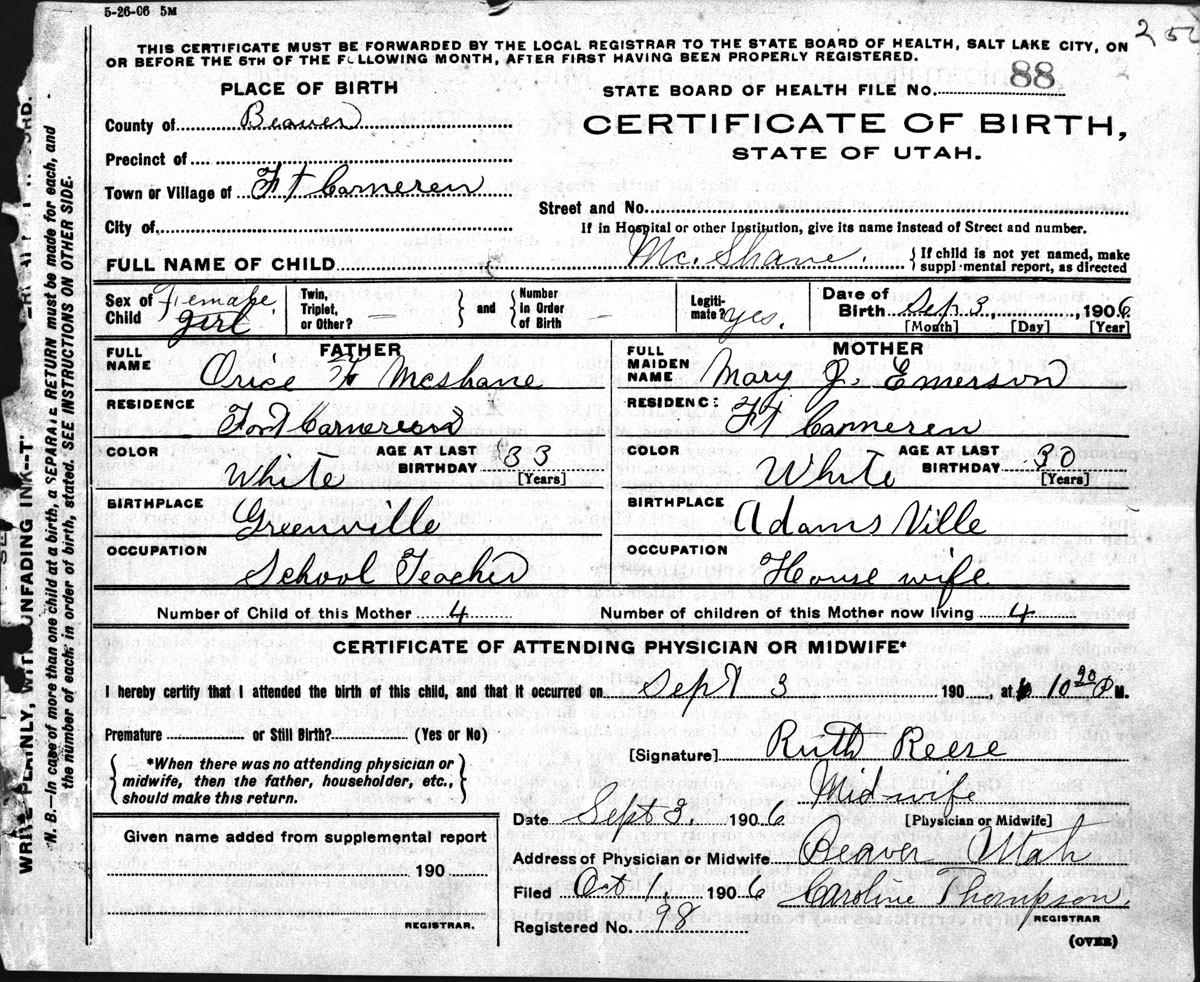 5-26-06 5M
THIS CERTIFICATE MUST BE FORWARDED BY THE LOCAL REGISTRAR TO THE STATE BOARD OF HEALTH, SALT LAKE CITY, ON
OR BEFORE THE 5TH OF THE FOLLOWING MONTH, AFTER FIRST HAVING BEEN PROPERLY REGISTERED.
PLACE OF BIRTH
STATE BOARD OF HEALTH FILE No. 88
County of Beaver
CERTIFICATE OF BIRTH,
STATE OF UTAH.
Precinct of
Town or Village of Ft Cameren
Street and No.
City of
If in Hospital or other Institution, give its name instead of Street and number.
FULL NAME OF CHILD Mc. Shane. { If child is not yet named, make
supplmental report, as directed
Sex of Child Female girl
Twin, Triplet, or Other? — } and { Number in Order of Birth —
Legiti-mate? yes.
Date of Birth Sep 3, 1906
[Month] [Day] [Year]
FATHER
FULL NAME Orice F Mcshane
RESIDENCE Fort Camereon
COLOR White AGE AT LAST BIRTHDAY 33 [Years]
BIRTHPLACE Greenville
OCCUPATION School Teacher
MOTHER
FULL MAIDEN NAME Mary J. Emerson
RESIDENC: Ft Cameren
COLOR White AGE AT LAST BIRTHDAY 30 [Years]
BIRTHPLACE Adams Ville
OCCUPATION House wife
Number of Child of this Mother 4 Number of children of this Mother now living 4
CERTIFICATE OF ATTENDING PHYSICIAN OR MIDWIFE*
I hereby certify that I attended the birth of this child, and that it occurred on Sept 3 190 , at 10 30 P M.
Premature or Still Birth? (Yes or No)
[Signature] Ruth Reese
*When there was no attending physician or
midwife, then the father, householder, etc.,
should make this return.
Midwife
Date Sept 3, 1906 [Physician or Midwife]
Given name added from supplemental report
190
REGISTRAR.
Address of Physician or Midwife Beaver Utah
Filed Oct 1, 1906 Caroline Thompson.
REGISTRAR
Registered No. 98
(OVER)
WRITE PLAINLY, WITH UNFADING INK--T
N. B.—In case of more than one child at a birth, a SEPARATE RETURN must be made for each, and
the number of each, in order of birth, stated. SEE INSTRUCTIONS ON OTHER SIDE.